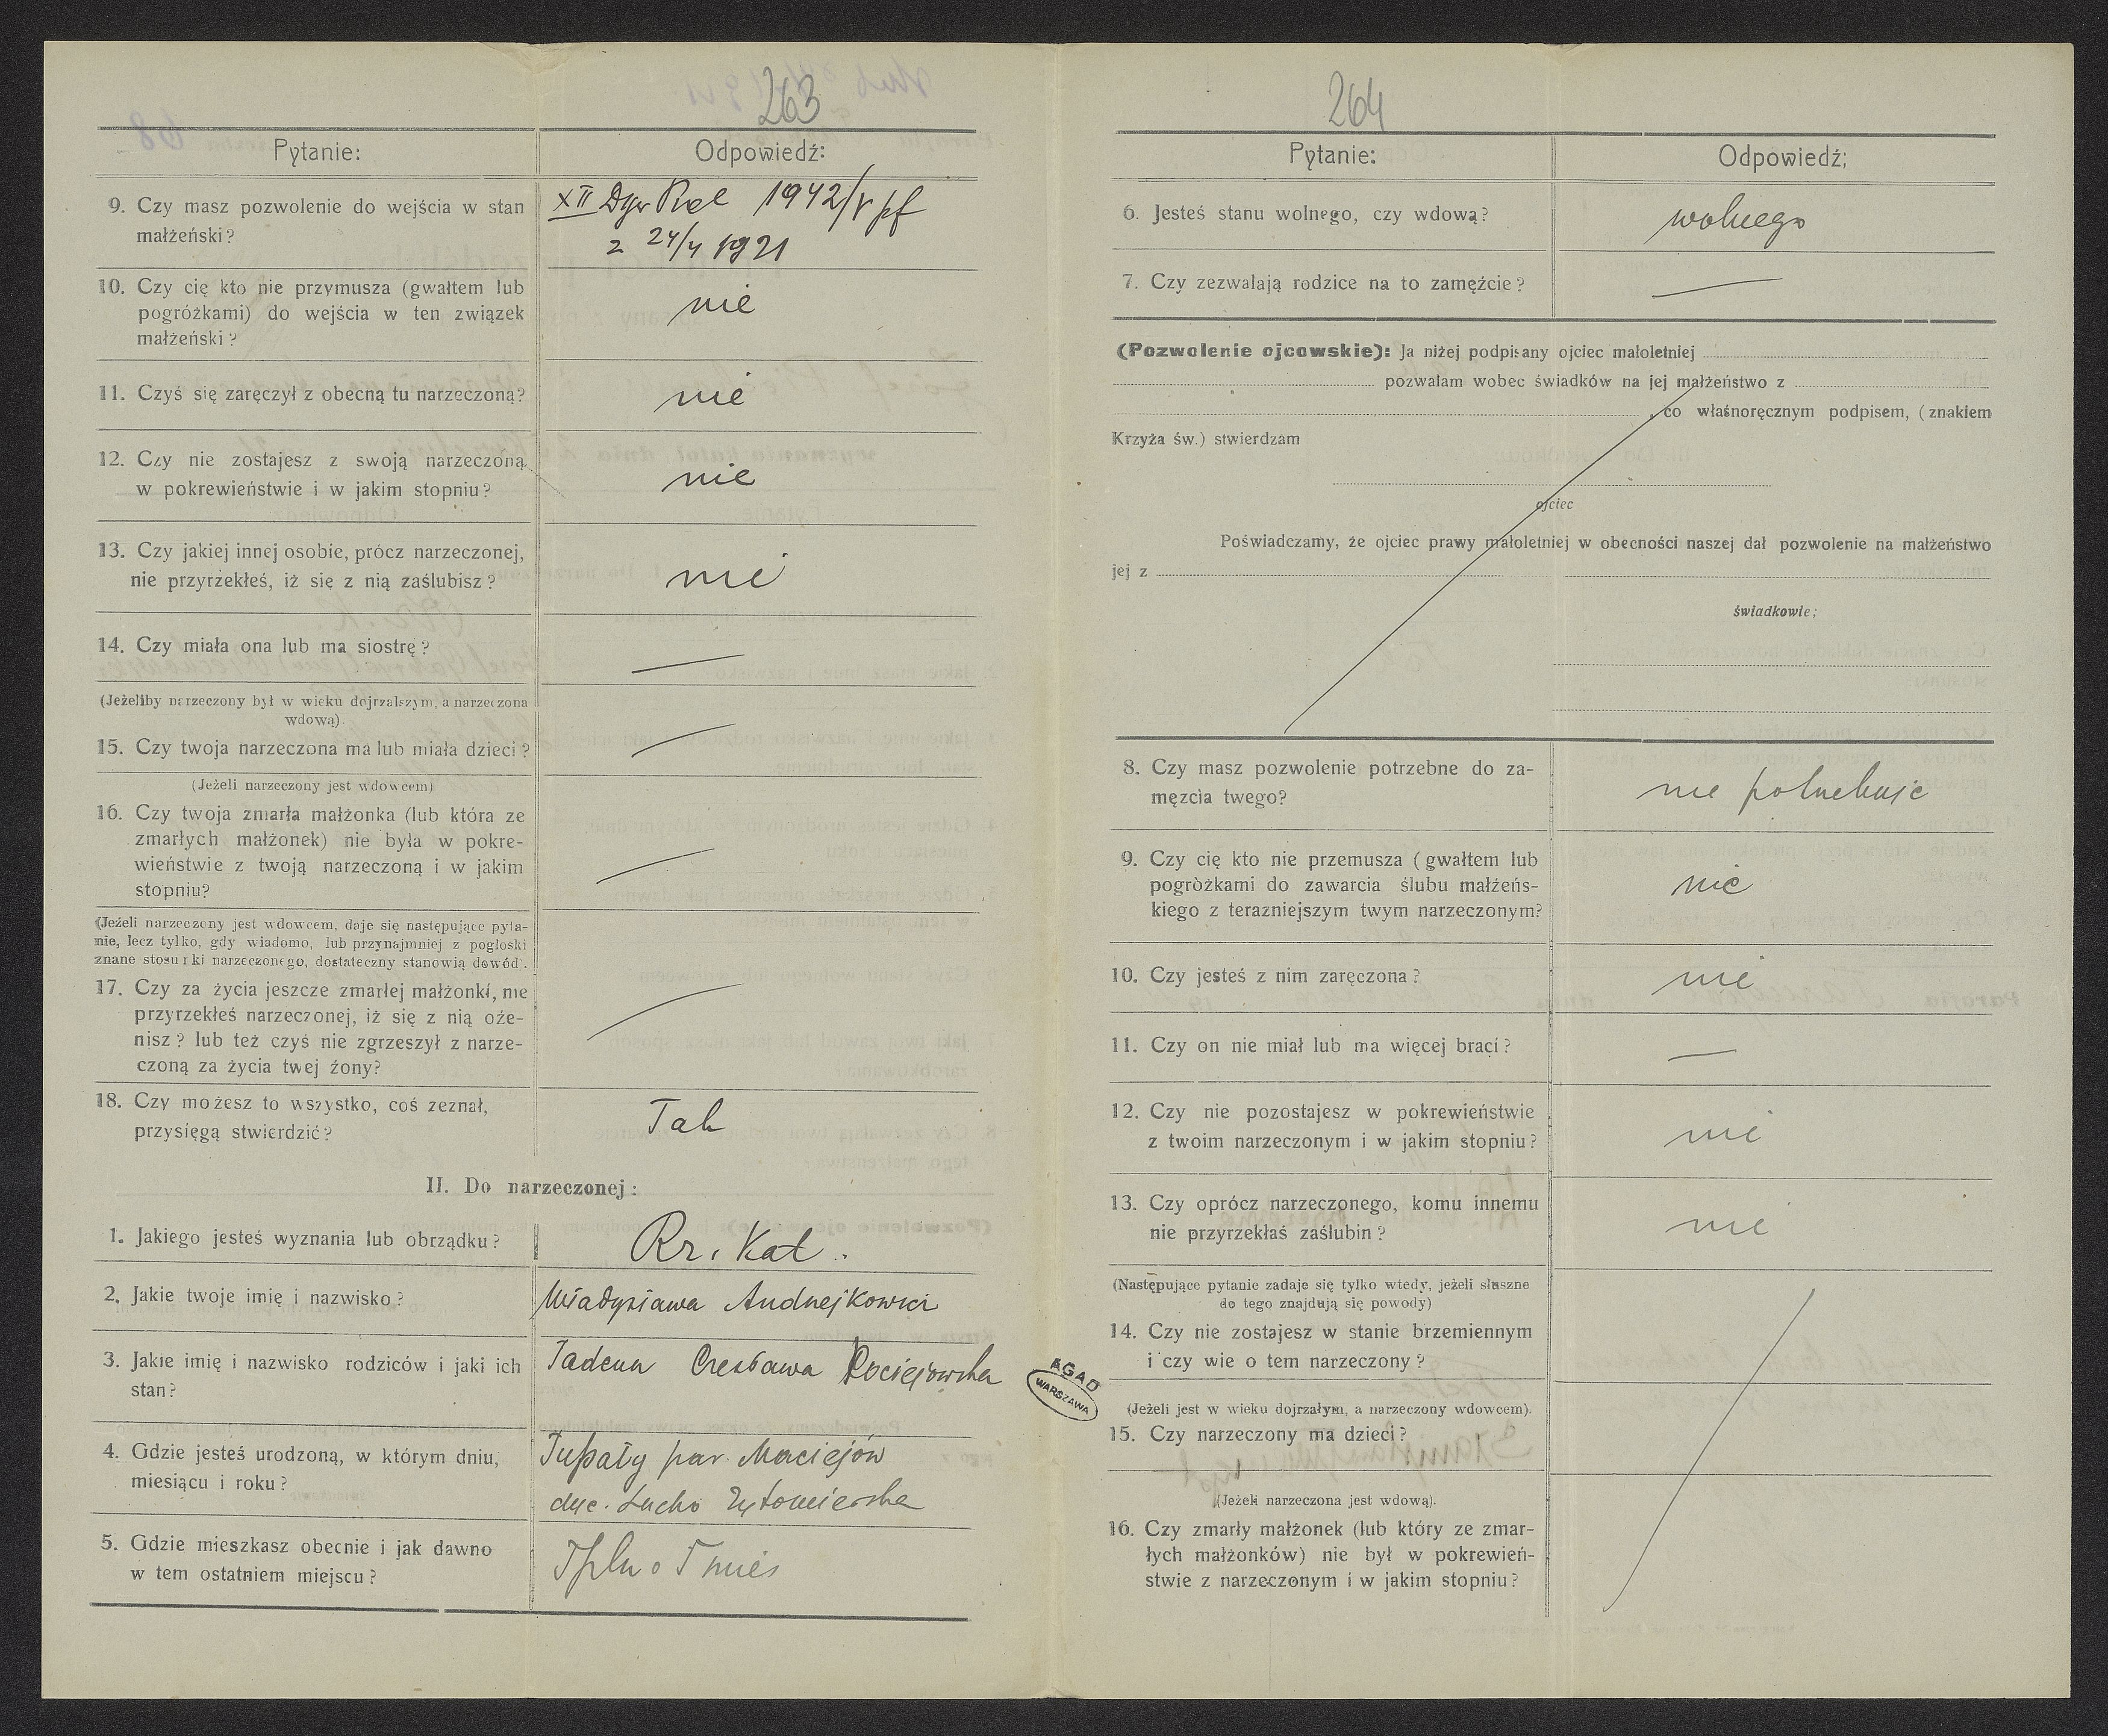 263
Pytanie:
Odpowiedź:
9. Czy masz pozwolenie do wejścia w stan
małżeński?
XII 1942/V
z 24/4 1921
10. Czy cię kto nie przymusza (gwałtem lub
pogróżkami) do wejścia w ten związek
małżeński?
nie
11. Czyś się zaręczył z obecną tu narzeczoną?
nie
12. Czy nie zostajesz z swoją narzeczoną
w pokrewieństwie i w jakim stopniu?
nie
13. Czy jakiej innej osobie, prócz narzeczonej,
nie przyrzekłeś, iż się z nią zaślubisz?
nie
14. Czy miała ona lub ma siostrę?
(Jeżeliby narzeczony był w wieku dojrzalszym, a narzeczona
wdową).
15. Czy twoja narzeczona ma lub miała dzieci?
(Jeżeli narzeczony jest wdowcem)
16. Czy twoja zmarła małżonka (lub która ze
zmarłych małżonek) nie była w pokre-
wieństwie z twoją narzeczoną i w jakim
stopniu?
(Jeżeli narzeczony jest wdowcem, daje się następujące pyta-
nie, lecz tylko, gdy wiadomo, lub przynajmniej z pogłoski
znane stosunki narzeczonego, dostateczny stanowią dowód).
17. Czy za życia jeszcze zmarłej małżonki, nie
przyrzekłeś narzeczonej, iż się z nią oże-
nisz? lub też czyś nie zgrzeszył z narze-
czoną za życia twej żony?
18. Czy możesz to wszystko, coś zeznał,
przysięgą stwierdzić?
Tak
II. Do narzeczonej:
1. Jakiego jesteś wyznania lub obrządku?
Rz. Kat.
2. Jakie twoje imię i nazwisko?
Władysława
3. Jakie imię i nazwisko rodziców i jaki ich
stan?
Czesława
4. Gdzie jesteś urodzoną, w którym dniu,
miesiącu i roku?
Tupały par. Maciejów
dyec. Łucko Żytomierska
5. Gdzie mieszkasz obecnie i jak dawno
w tem ostatniem miejscu?
264
Pytanie:
Odpowiedź:
6. Jesteś stanu wolnego, czy wdową?
wolnego
7. Czy zezwalają rodzice na to zamęźcie?
(Pozwolenie ojcowskie): Ja niżej podpisany ojciec małoletniej
pozwalam wobec świadków na jej małżeństwo z
, co właśnoręcznym podpisem, (znakiem
Krzyża św.) stwierdzam
ojciec
Poświadczamy, że ojciec prawy małoletniej w obecności naszej dał pozwolenie na małżeństwo
jej z
świadkowie:
8. Czy masz pozwolenie potrzebne do za-
męzcia twego?
nie potrzebuje
9. Czy cię kto nie przemusza (gwałtem lub
pogròżkami do zawarcia ślubu małżeńs-
kiego z terazniejszym twym narzeczonym?
nie
10. Czy jesteś z nim zaręczona?
nie
11. Czy on nie miał lub ma więcej braci?
12. Czy nie pozostajesz w pokrewieństwie
z twoim narzeczonym i w jakim stopniu?
nie
13. Czy oprócz narzeczonego, komu innemu
nie przyrzekłaś zaślubin?
nie
(Następujące pytanie zadaje się tylko wtedy, jeżeli słuszne
do tego znajdują się powody)
14. Czy nie zostajesz w stanie brzemiennym
i czy wie o tem narzeczony?
(Jeżeli jest w wieku dojrzałym, a narzeczony wdowcem).
15. Czy narzeczony ma dzieci?
(Jeżeli narzeczona jest wdową).
16. Czy zmarły małżonek (lub który ze zmar-
łych małżonków) nie był w pokrewień-
stwie z narzeczonym i w jakim stopniu?
AGAD
WARSZAWA